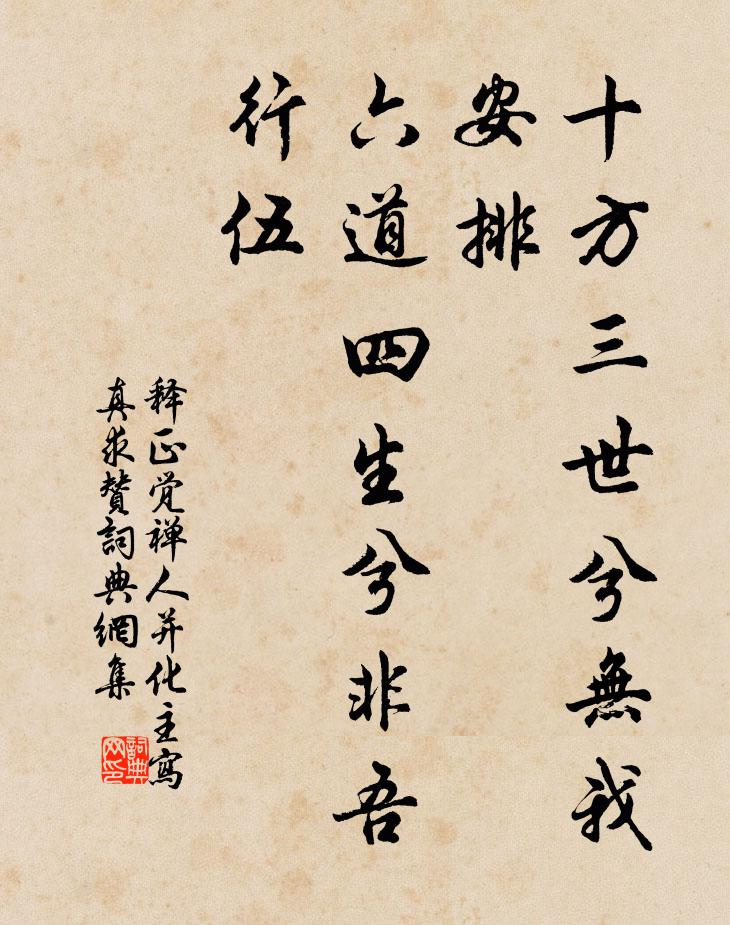 十方三世兮無我
安排
六道四生兮非吾
行伍
释正觉禅人并化主寫
真求贊詞典網集
詞典
网印